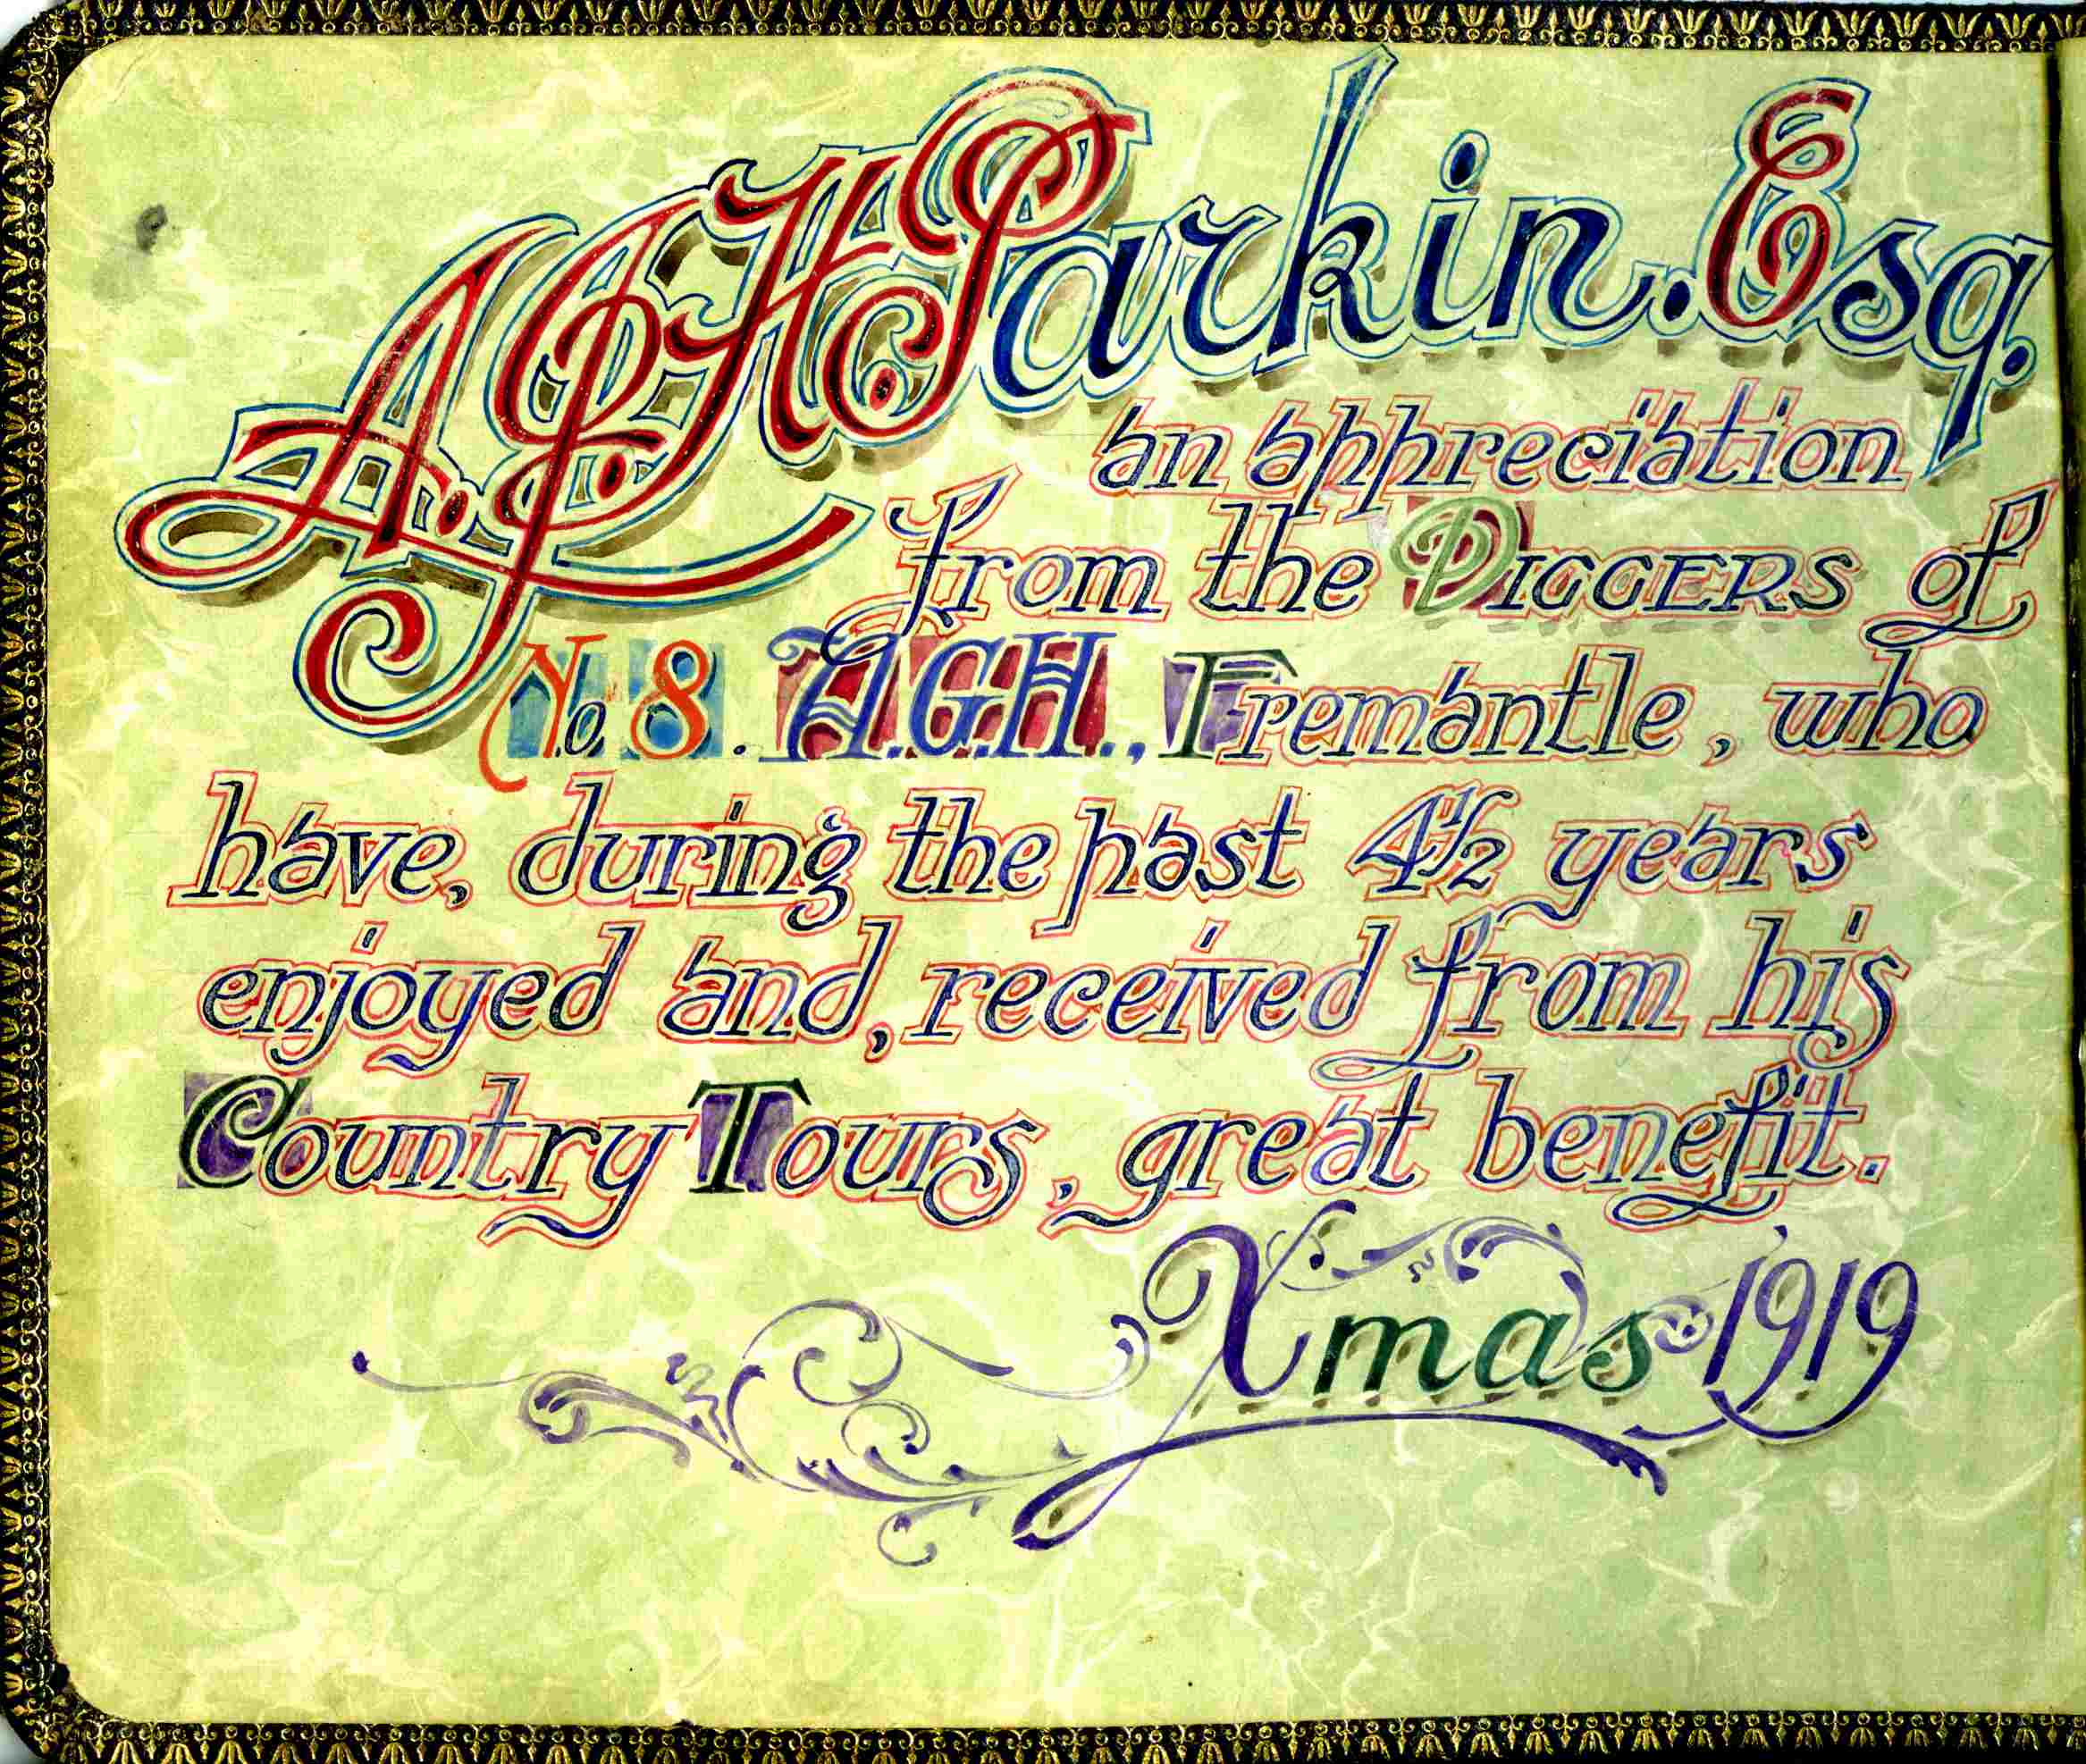 A. J. H. Parkin. Esq.
an appreciation
from the DIGGERS of
No. 8. A.G.H., Fremantle, who
have, during the past 4½ years
enjoyed and, received from his
Country Tours, great benefit.
Xmas 1919